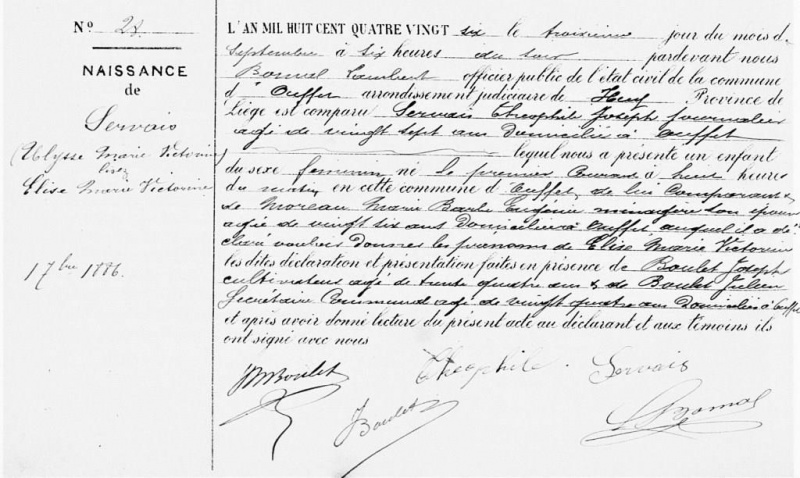 N° 28
NAISSANCE
de
Servais
(Ulysse Marie Victorin
lisez
Elise Marie Victorine
1 7bre 1886.
L'AN MIL HUIT CENT QUATRE VINGT six le troisième jour du mois d
septembre à six heures du soir pardevant nous
Bonmal Lambert officier public de l'état civil de la commune
d' Ouffet arrondissement judiciaire de Huy Province de
Liège est comparu Servais Théophile Joseph journalier
agé de vingt sept ans domicilié à Ouffet
lequel nous a présenté un enfant
du sexe feminin né le premier courant à huit heures
du matin en cette commune d' Ouffet, de lui comparant &
de Moreau Marie Barbe Eugénie ménagère son épouse
agée de vingt six ans domiciliée à Ouffet auquel il a dé
claré vouloir donner les prénoms de Elise Marie Victorine
les dites déclaration et présentation faites en présence de Boulet Joseph
cultivateur agé de trente quatre ans & de Boulet Julien
Secrétaire Communal agé de vingt quatre ans domiciliés à Ouffet
et après avoir donné lecture du présent acte au déclarant et aux témoins ils
ont signé avec nous
Boulet
Théophile Servais
J Boulet
L Bonmal